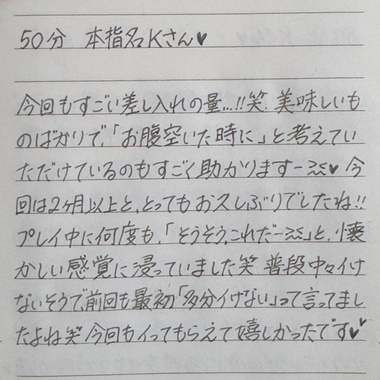 50分 本指名Kさん♥
今回もすごい差し入れの量...!!笑 美味しいも
のばかりで、「お腹空いた時に」と考えてい
ただけているのもすごく助かりますー>>♥ 今
回は2ヶ月以上と、とってもお久しぶりでしたね!!
プレイ中に何度も、「そうそう、これだー>>」と、懐
かしい感覚に浸っていました笑 普段中々イけ
ないそうで、前回も最初「多分イけない」って言ってまし
たよね笑 今回もイってもらえて嬉しかったです♥♥